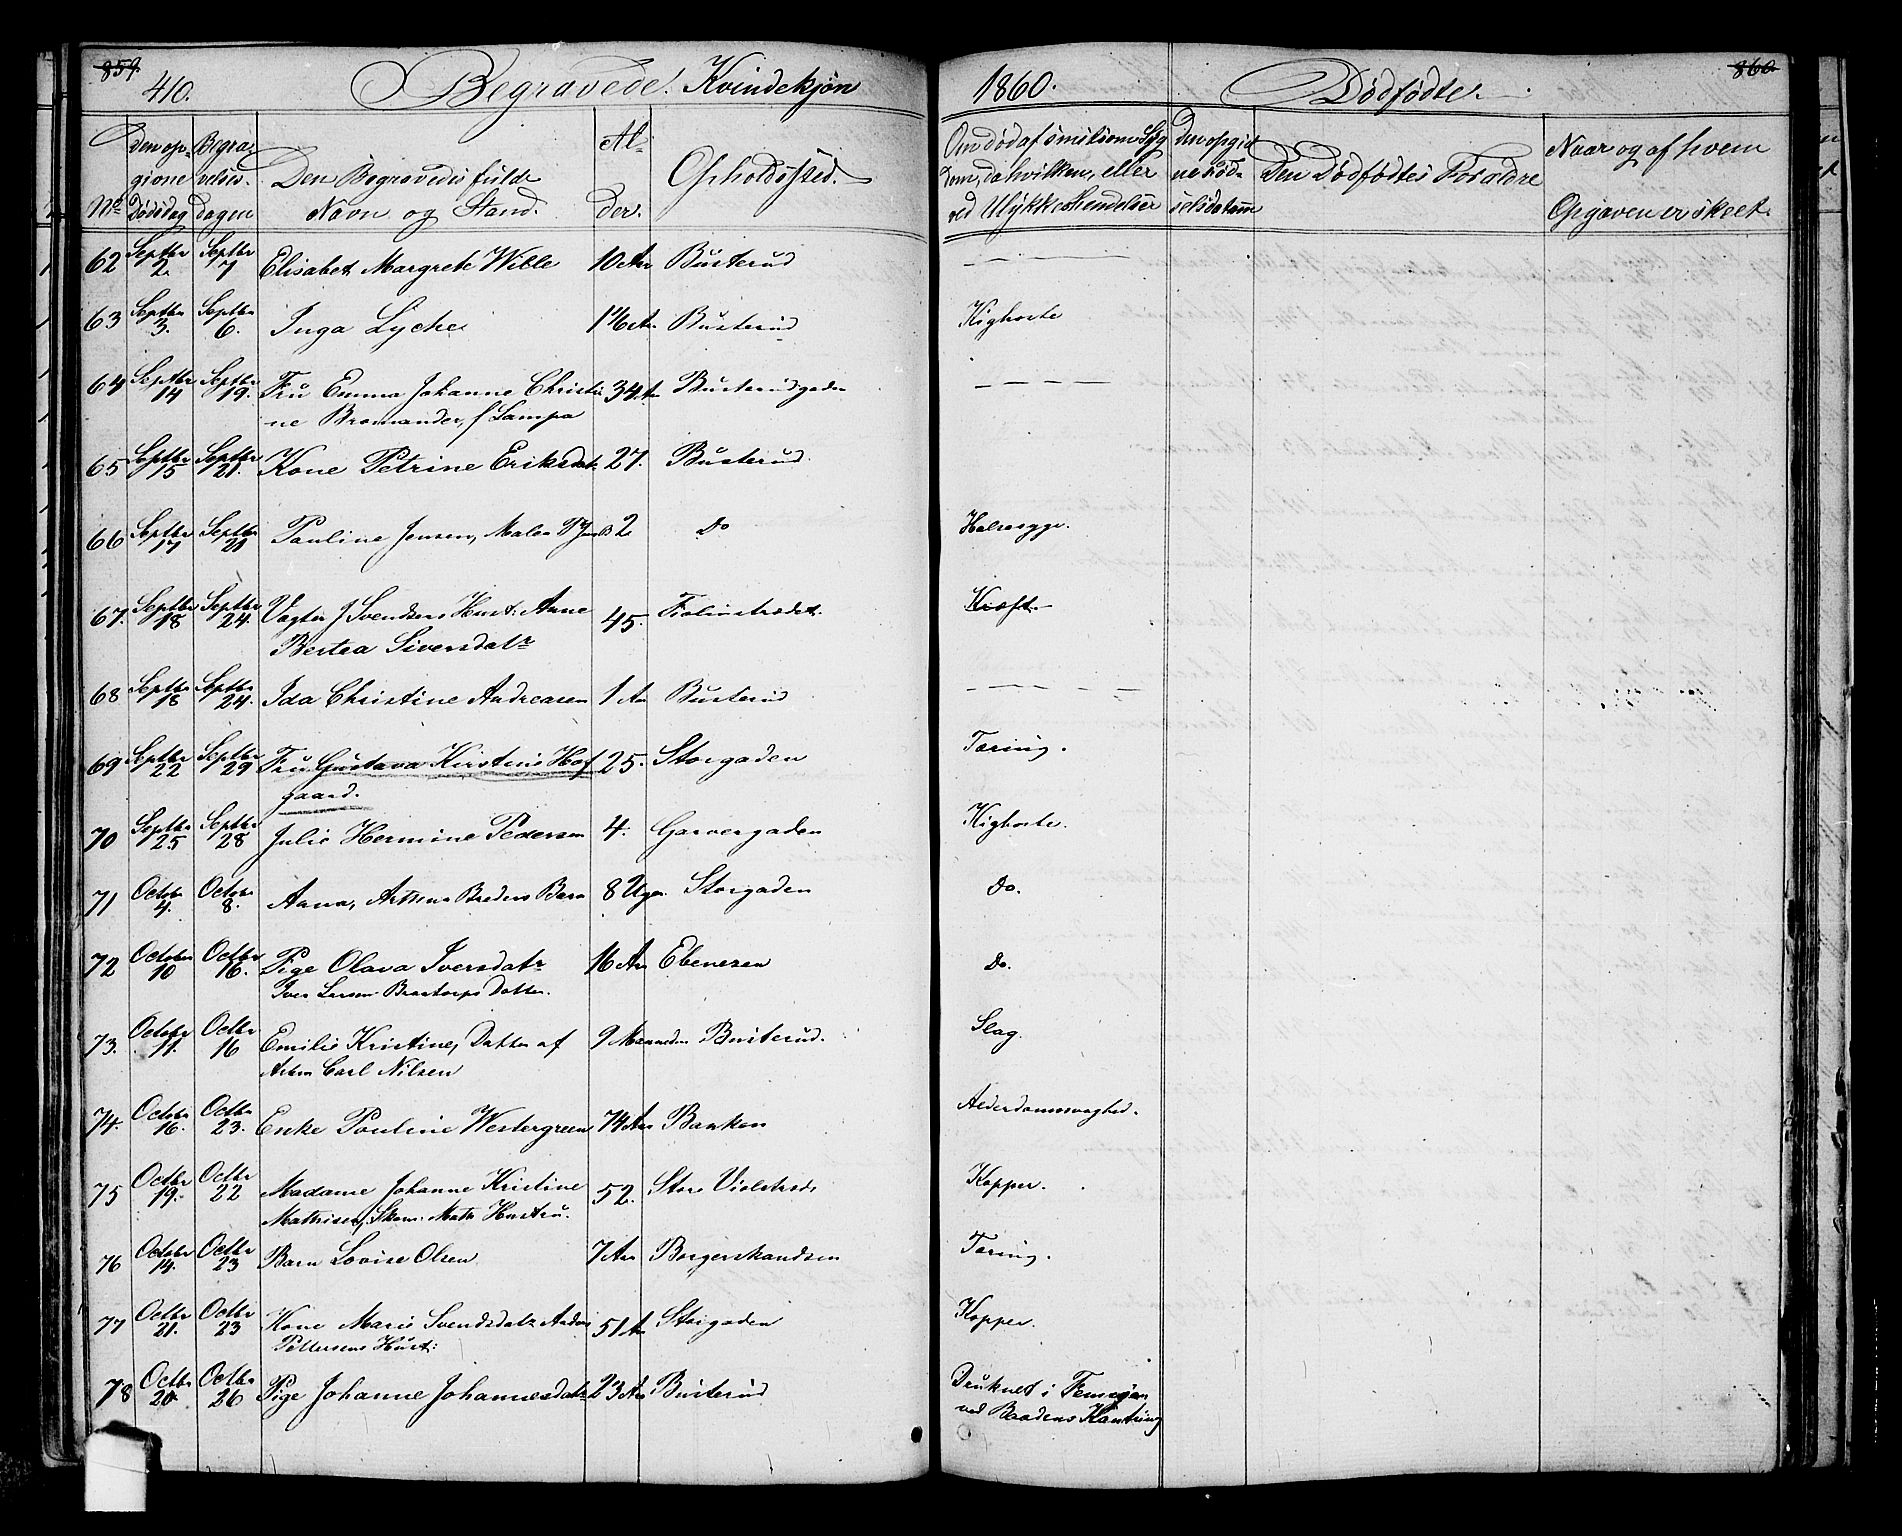 859. 410. Begravede. Kvindekjøn 1860. Dødfødte. 860
No Den opgivne Dødsdag Begravelsesdagen Den Begravedes fulde Navn og Stand. Alder. Opholdssted. Om død af smitsom Sygdom, da hvilken, eller ved Ulykkeshendelser Den opgivne Fødselsdatum Den Dødfødtes Forældre Naar og af hvem Opgaven er skeet.
62 Septbr 2. Septbr 7 Elisabet Margrete Wille 10 Aar Busterud — — — —
63 Septbr 3. Septbr 6. Inga Lyche Aar Busterud Kighoste
64 Septbr 14 Septbr 19. Fru Emma Johanne Christi 34 Aar Busterudgaden — — — —
ne Bromander, f Lampa
65 Septbr 15 Septbr 21. Kone Petrine Eriksdatr 27. Busterud
66 Septbr 17 Septbr 21 Pauline Jensen, Maler 2 Do Halssyge.
67. Septbr 18 Septbr 24. Vagter J Svendsens Hust: Anne 45. Fiolinstrædet. Kræft.
Bertea Siversdatr
68 Septbr 18 Septbr 24. Ida Christine Andreasen 1 Aar Busterud — — — —
69 Septbr 22 Septbr 29 Fru Gustava Kirstine Hof 25. Storgaden Tæring.
gaard.
70 Septbr 25 Septbr 28 Julie Hermine Pedersen 4. Garvergaden Kighoste.
71 Octobr 4. Octobr 8. Anna, Barn 8 Uger Storgaden Do.
72 October 10 Octbr 16. Pige Olava Iversdatr 16 Aar Ebeneser Do.
Iver Larsen Datter.
73. Octobr 11. Octbr 16 Emilie Kristine, Datter af 9 Maaneder Busterud. Slag.
Arbm Carl Nilsen
74. Octobr 16. Octbr 23. Enke Pauline Westergreen 74 Aar Banken Alderdomssvaghed.
75 Octbr 19. Octbr 22 Madame Johanne Kristine 52. Store Kopper.
Mathisen, Skom: Math Hustru.
76 Octobr 14. Octbr 23 Barn Lovise Olsen 7 Aar Borgerskandsen Tæring.
77 Octbr 21. Octbr 23 Kone Marie Svendsdatr Anders 51 Aar Storgaden Kopper.
Pettersens Hust:
78 Octbr 20 Octbr 26 Pige Johanne Johannesdatr 23 Aar Busterud Druknet i Femsjøen
ved Baadens Kantring